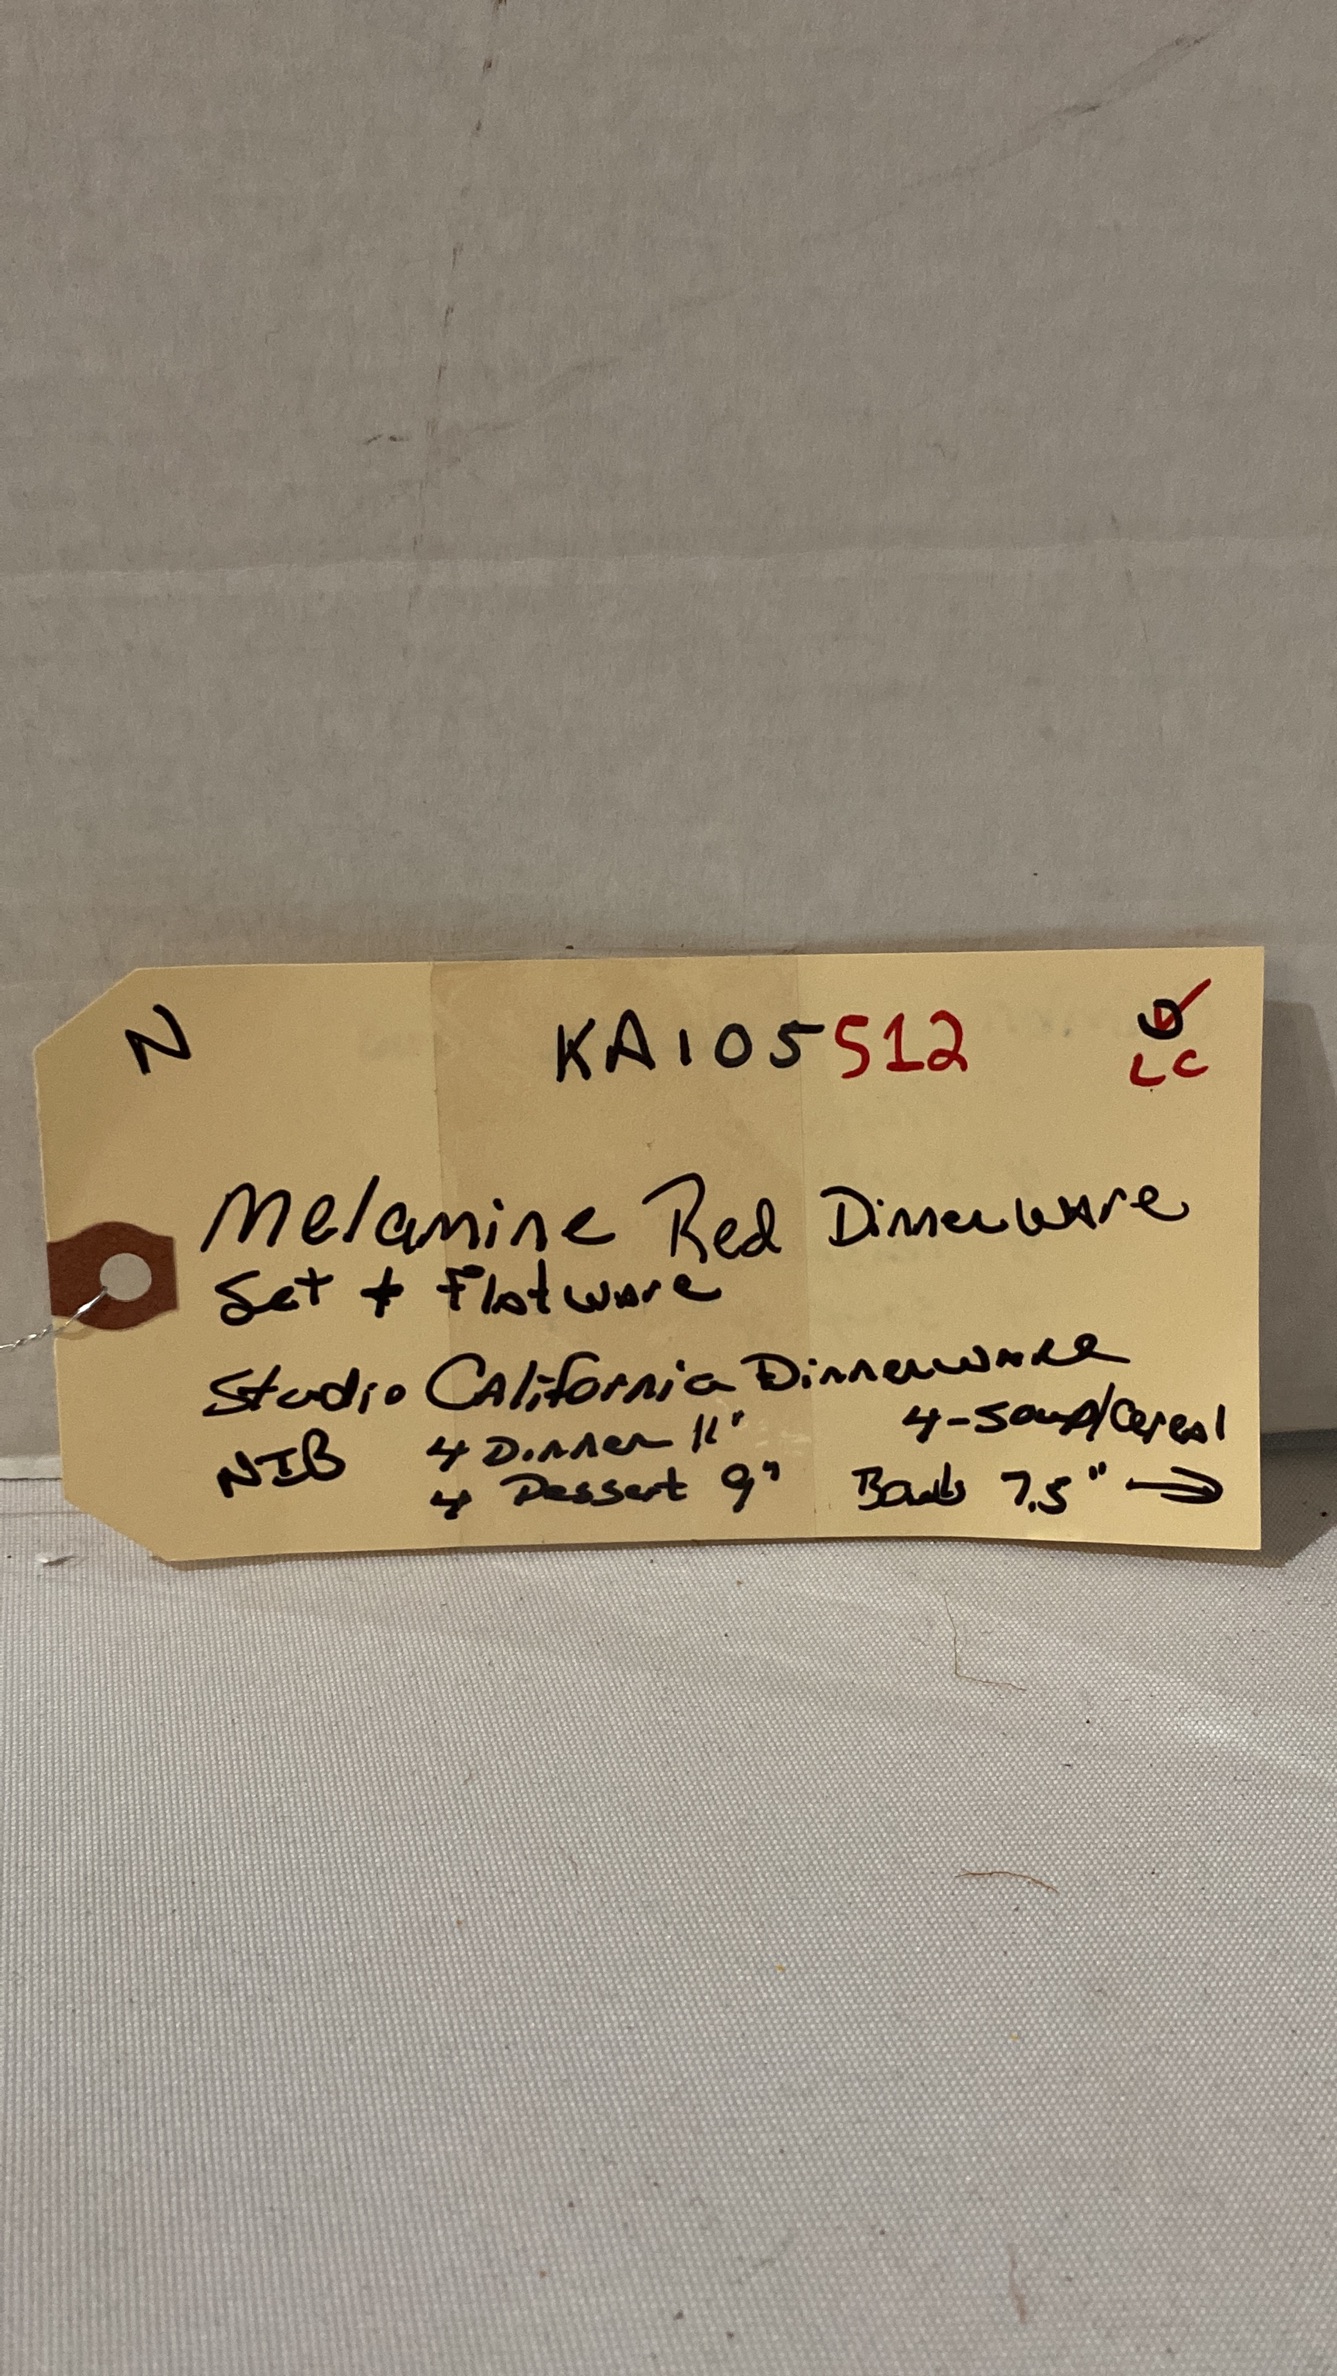 N KA105512 D
LC
Melamine Red Dinnerware
Set + Flatware
Studio California Dinnerware
NIB 4 Dinner 11" 4-Soup/Cereal
4 Dessert 9" Bowls 7.5" →